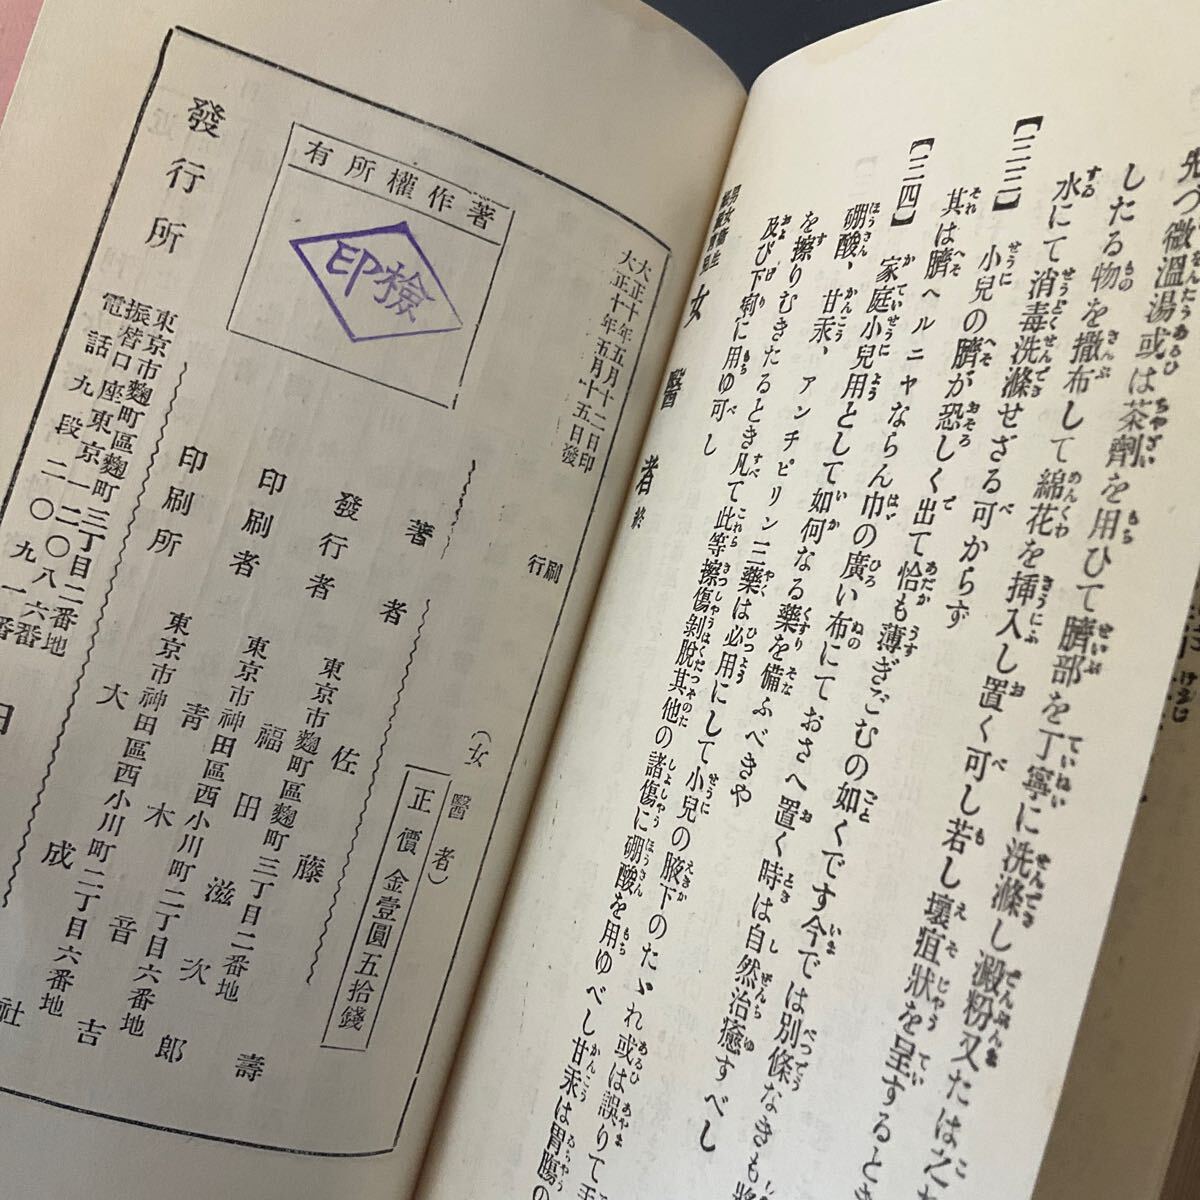 先つ微溫湯或は茶劑を用ひて臍部を丁寧に洗滌し澱粉又たは之
したる物を撒布して綿花を挿入し置く可し若し壞疽狀を呈するとき
水にて消毒洗滌せざる可からず
【三三】 小兒の臍が恐しく出て恰も薄ぎごむの如くです今では別條なきも將
其は臍ヘルニヤならん巾の廣い布にておさへ置く時は自然治癒すべし
【三四】 家庭小兒用として如何なる藥を備ふべきや
硼酸、甘汞、アンチピリン三藥は必用にして小兒の腋下のたゞれ或は誤りて
を擦りむきたるとき凡て此等擦傷剝脫其他の諸傷に硼酸を用ゆべし甘汞は胃膓の
及び下痢に用ゆ可し
女醫者 終
大正十年五月十二日印刷
大正十年五月十五日發行
(女醫者)
正價金壹圓五拾錢
著作權所有
檢印
著者 佐藤 壽
東京市麴町區麴町三丁目二番地
發行者 福田滋次郎
東京市神田區西小川町二丁目六番地
印刷者 青木音吉
東京市神田區西小川町二丁目六番地
印刷所 大成社
發行所
東京市麴町區麴町三丁目二番地
振替口座東京一二〇八六番
電話九段二〇九一番